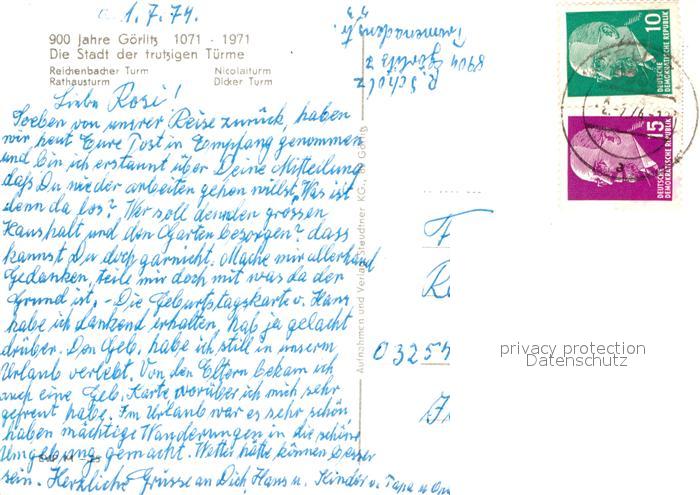 d. 1.7.74.
900 Jahre Görlitz 1071 - 1971
Die Stadt der trutzigen Türme
Reichenbacher Turm Nicolaiturm
Rathausturm Dicker Turm
Liebe Rosi!
Soeben von unsrer Reise zurück, haben
wir heut Eure Post in Empfang genommen
und bin ich erstaunt über Deine Mitteilung
daß Du wieder arbeiten gehen willst. Was ist
denn da los? Wer soll denn den grossen
Haushalt und den Garten besorgen? dass
kannst Du doch garnicht. Mache mir allerhand
Gedanken, teile mir doch mit was da der
Grund ist. - Die Geburtstagskarte v. Hans
habe ich dankend erhalten, hab ja gelacht
drüber. Den Geb. habe ich still in unserm
Urlaub verlebt. Von den Eltern bekam ich
auch eine Geb. Karte worüber ich mich sehr
gefreut habe. Im Urlaub war es sehr schön
haben mächtige Wanderungen in die schöne
Umgebung gemacht. Wetter hätte können besser
sein. Herzliche Grüsse an Dich, Hans u. Kinder v. Papa u
R. Scholz
8904 Görlitz 2
Promenadenstr.
73
Aufnahmen und Verlag Steudtner KG., Görlitz
10
DEUTSCHE
DEMOKRATISCHE REPUBLIK
15
DEUTSCHE
DEMOKRATISCHE REPUBLIK
03254
privacy protection
Datenschutz